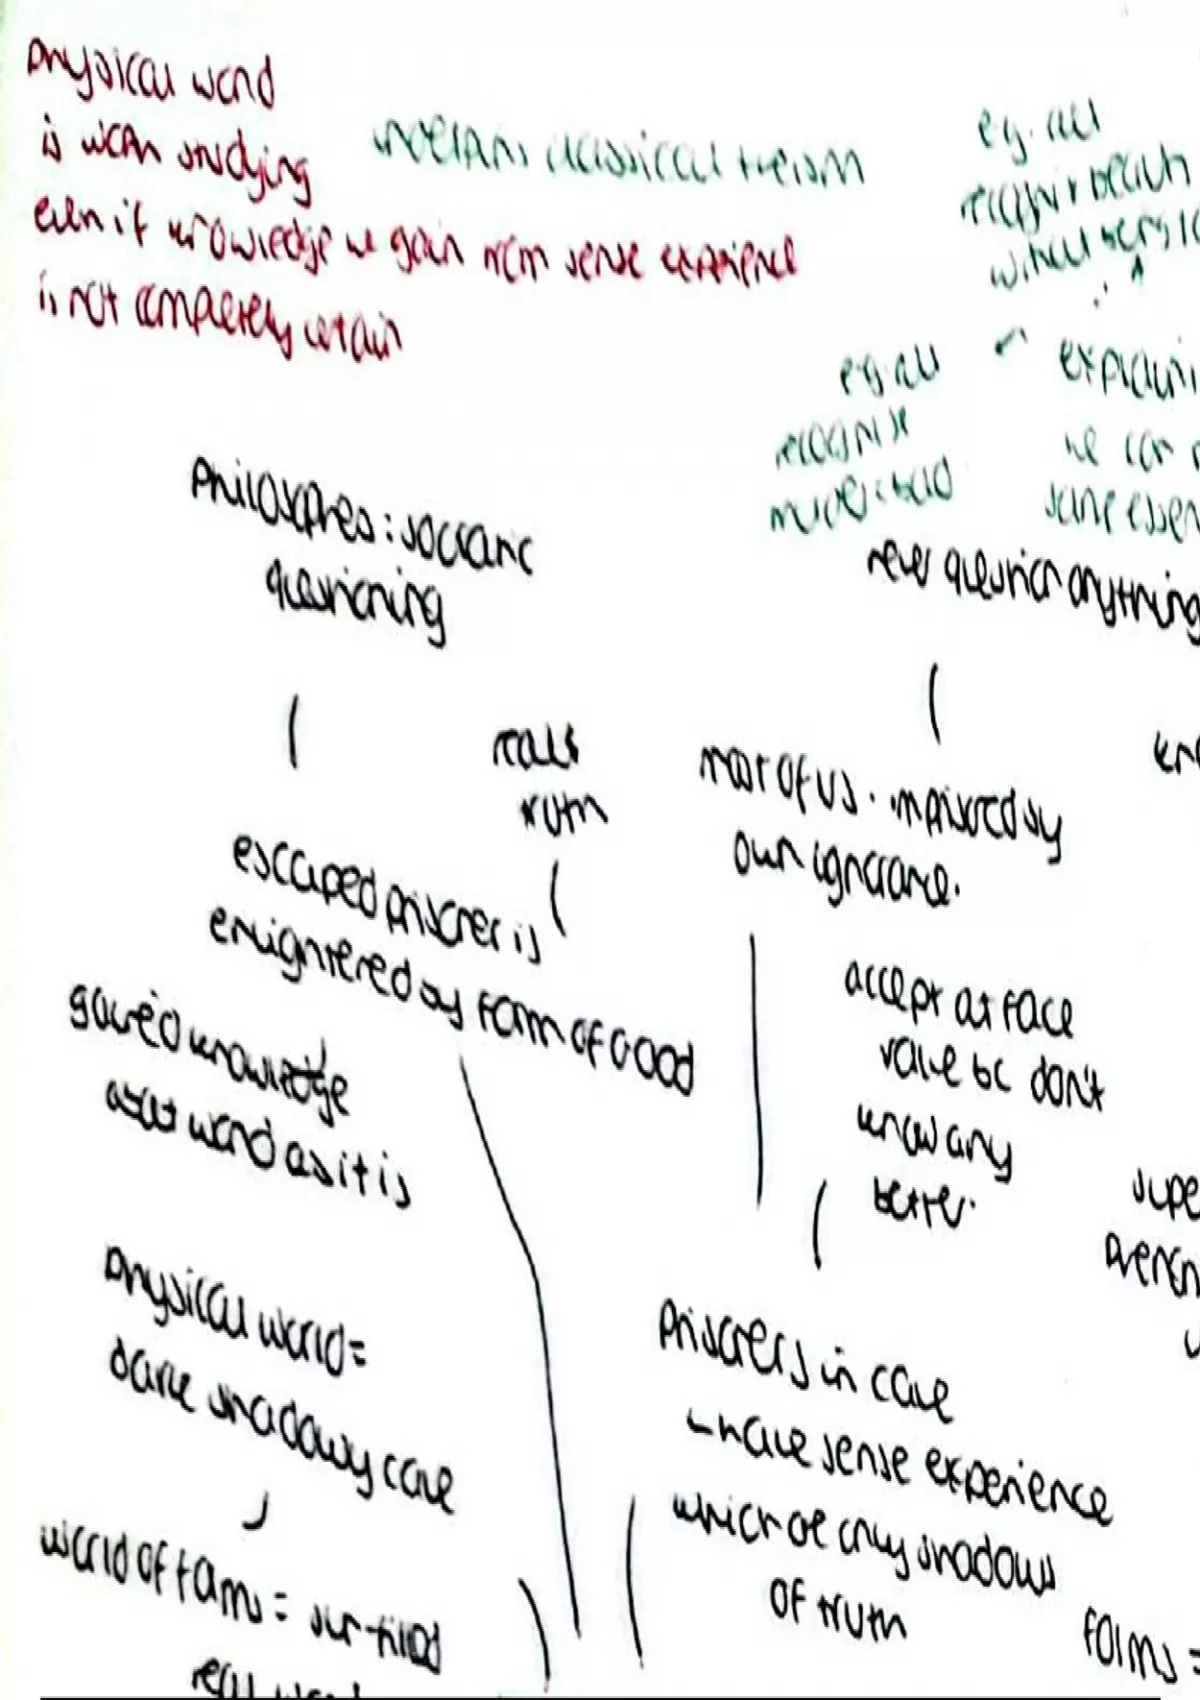 physical world
is worth studying
even if knowledge we gain from sense experience
is not completely certain
underpins classical theism
e.g. all
recognise beauty
without being
e.g. all
recognise
murder = bad
we can
same essen
Philosophers: socratic
questioning
never question anything
reals
truth
most of us. imprisoned by
own ignorance.
escaped prisoner is
enlightened by Form of Good
gained knowledge
world as it is
accept at face
value bc don't
know any
better.
supe
physical world =
dark shadowy cave
Prisoners in cave
- have sense experience
which are only shadows
of truth
world of Forms = sun-filled
real world
Forms =